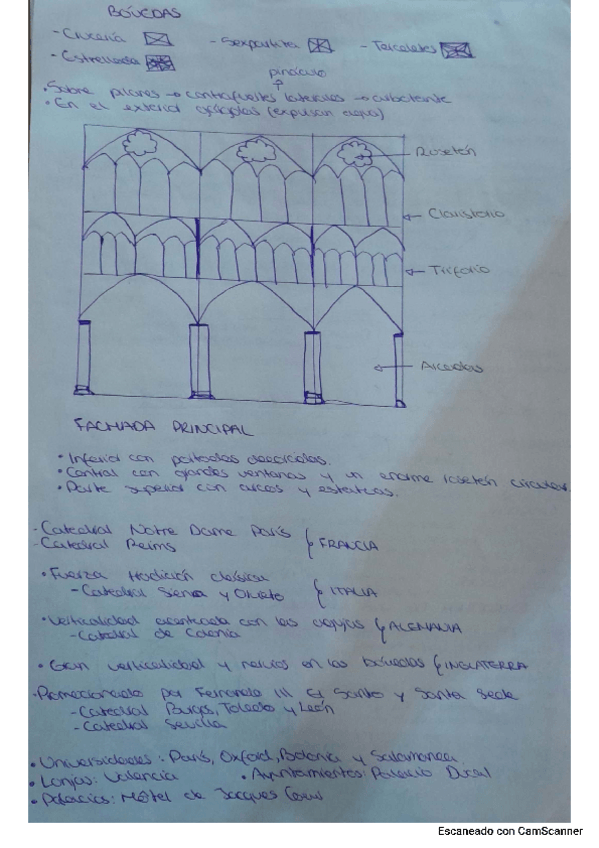 BÓVEDAS
- Crucería - Sexpartita - Terceletes
- Estrellada
pináculo
• Sobre pilares → contrafuertes laterales → arbotante
• En el exterior gárgolas (expulsan agua)
Rosetón
Claristorio
Triforio
Arcadas
FACHADA PRINCIPAL
• Inferior con portadas
• Central con grandes ventanas y un enorme rosetón circular
• Parte superior con arcos y estatuas.
- Catedral Notre Dame París
- Catedral Reims
FRANCIA
• Fuerza tradición clásica
- Catedral Siena y Orvieto
ITALIA
• Verticalidad acentuada con las agujas
ALEMANIA
- Catedral de Colonia
• Gran verticalidad y nervios en las bóvedas
INGLATERRA
- Promocionado por Fernando III El Santo y Santa Sede
- Catedral Burgos, Toledo y León
- Catedral Sevilla
• Universidades: París, Oxford, Bolonia y Salamanca.
• Lonjas: Valencia • Ayuntamientos: Palacio Ducal
• Palacios: Hôtel de Jacques Coeur
Escaneado con CamScanner